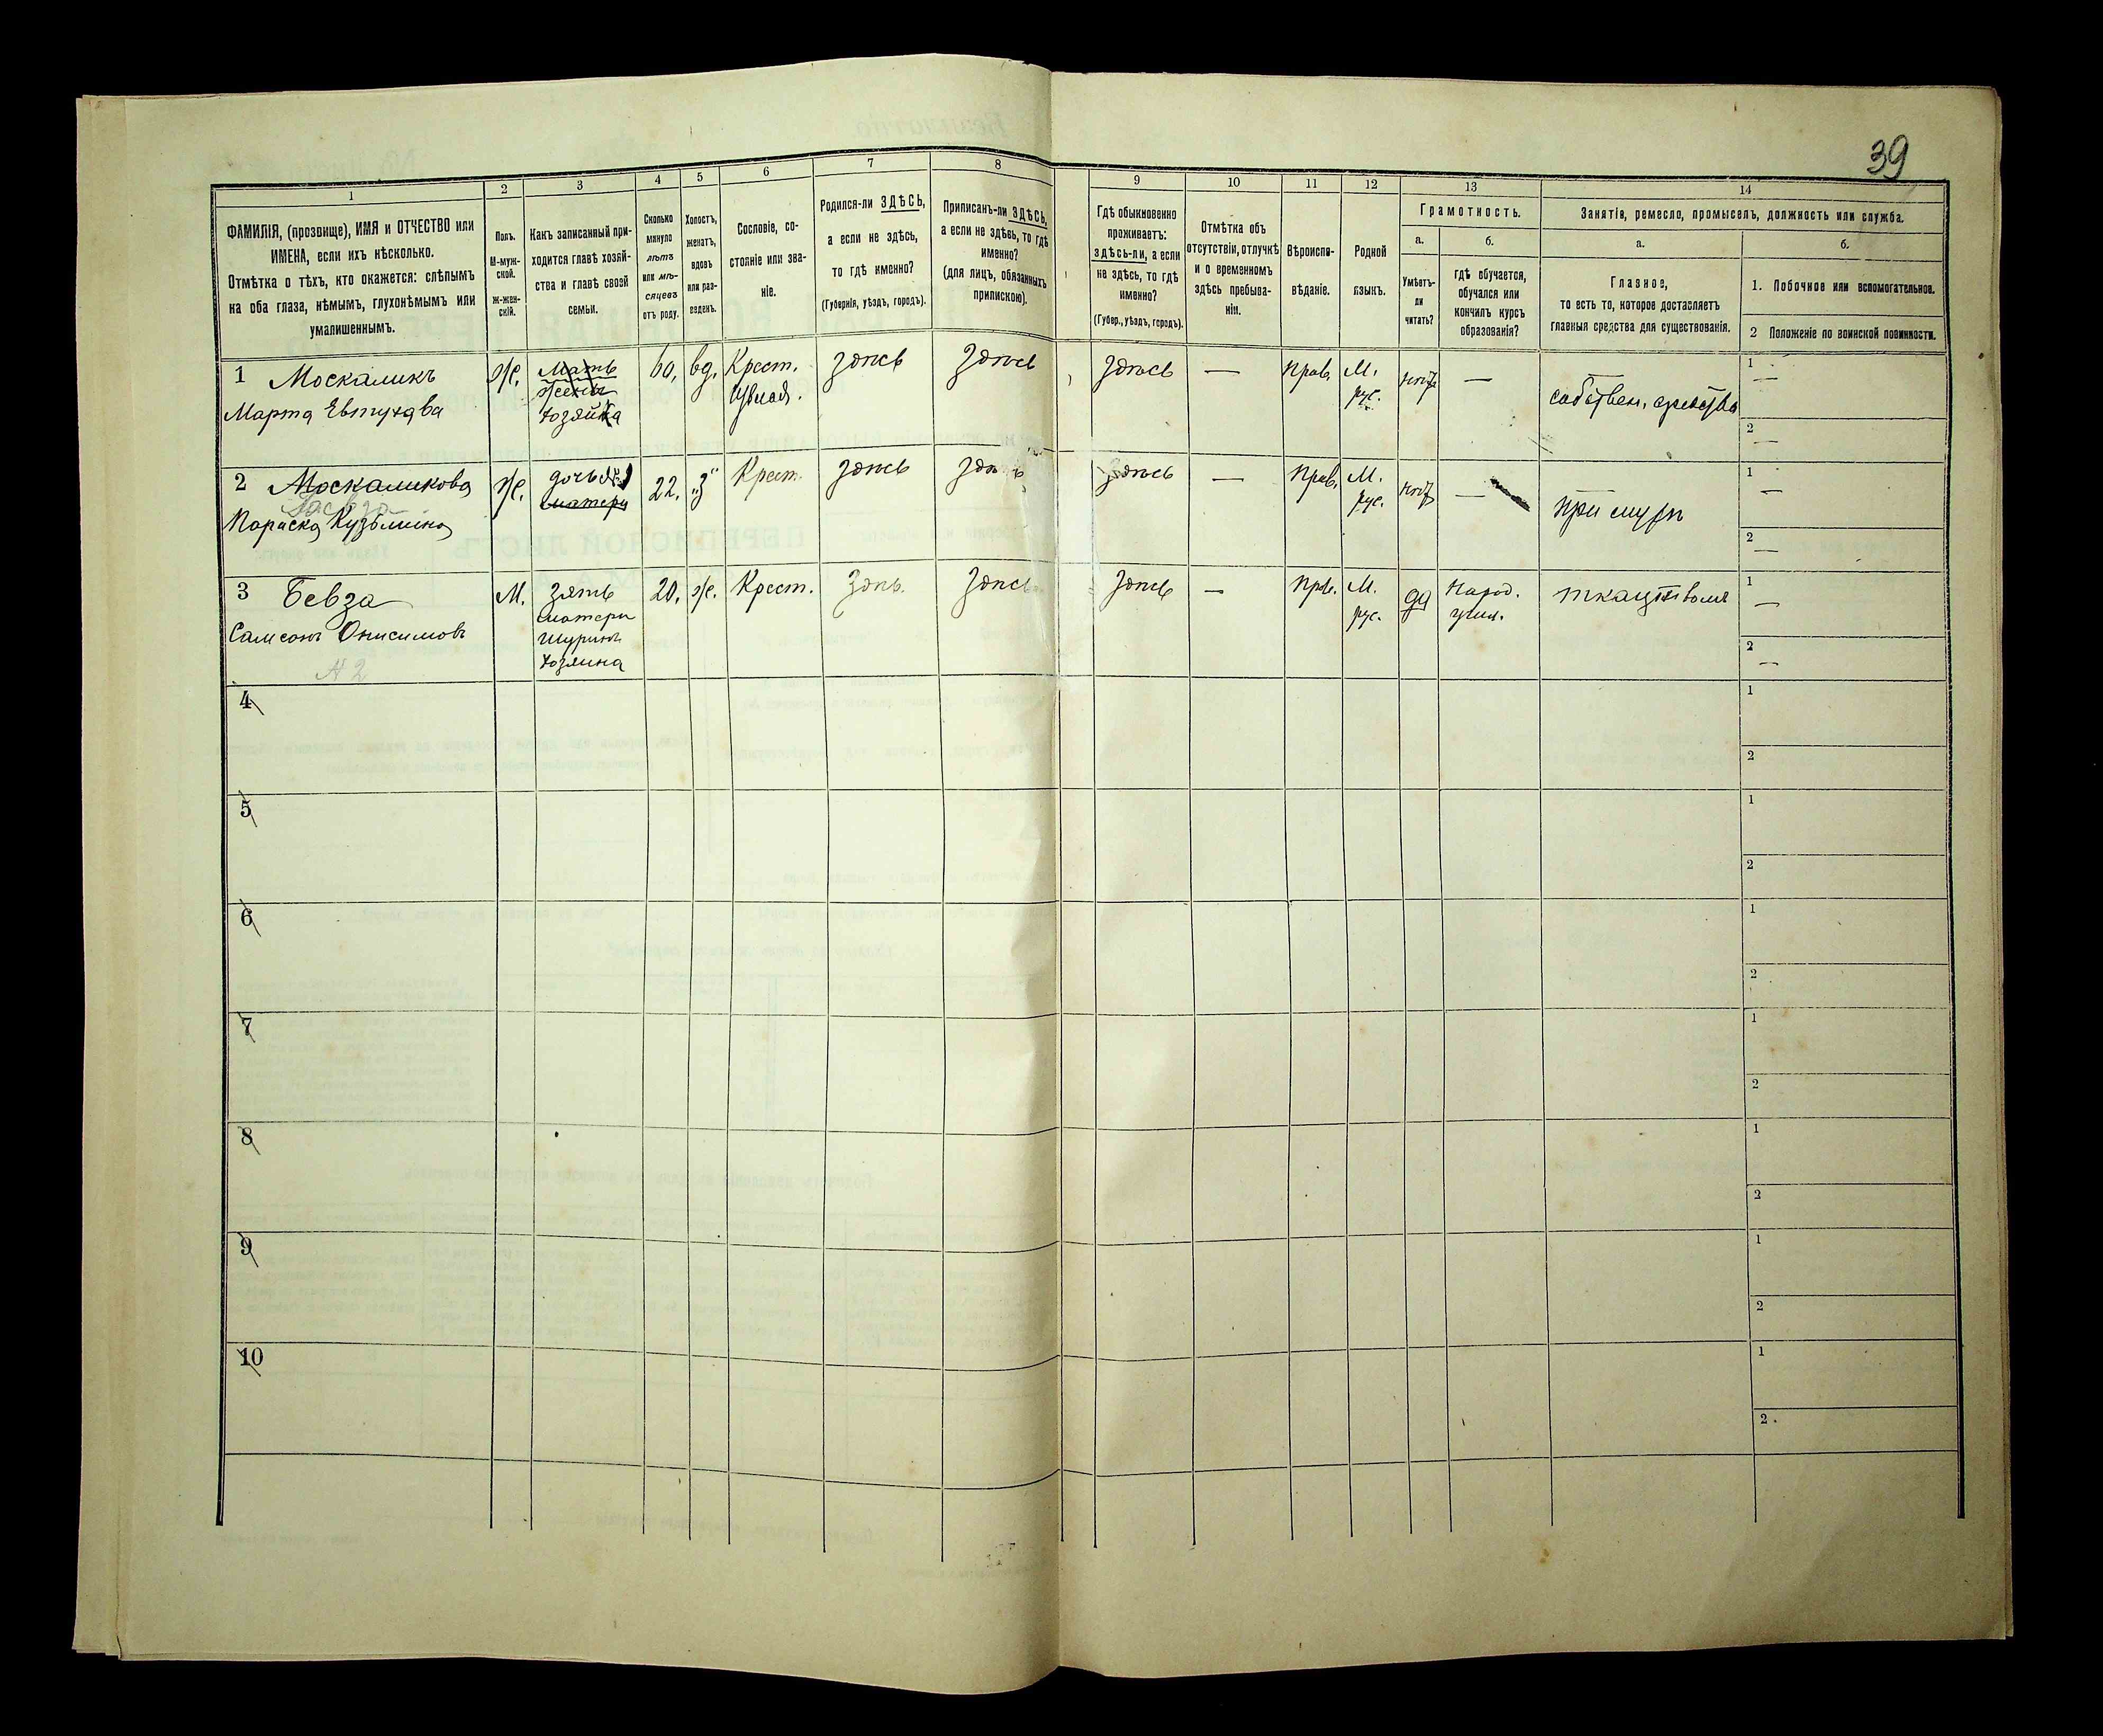 39
1
2
3
4
5
6
7
8
9
10
11
12
13
14
ФАМИЛІЯ, (прозвище), ИМЯ и ОТЧЕСТВО или
ИМЕНА, если ихъ нѣсколько.
Отмѣтка о тѣхъ, кто окажется: слѣпымъ
на оба глаза, нѣмымъ, глухонѣмымъ или
умалишеннымъ.
Полъ.
М-муж-
ской.
Ж-жен-
скій.
Какъ записанный при-
ходится главѣ хозяй-
ства и главѣ своей
семьи.
Сколько
минуло
лѣтъ
или мѣ-
сяцевъ
отъ роду.
Холостъ,
женатъ,
вдовъ
или раз-
веденъ.
Сословіе, со-
стояніе или зва-
ніе.
Родился-ли ЗДѢСЬ,
а если не здѣсь,
то гдѣ именно?
(Губернія, уѣздъ, городъ).
Приписанъ-ли ЗДѢСЬ,
а если не здѣсь, то гдѣ
именно?
(для лицъ, обязанныхъ
припискою).
Гдѣ обыкновенно
проживаетъ:
здѣсь-ли, а если
не здѣсь, то гдѣ
именно?
(Губер., уѣздъ, городъ).
Отмѣтка объ
отсутствіи, отлучкѣ
и о временномъ
здѣсь пребыва-
ніи.
Вѣроиспо-
вѣданіе.
Родной
языкъ.
Грамотность.
а.
Умѣетъ-
ли
читать?
б.
гдѣ обучается,
обучался или
кончилъ курсъ
образованія?
Занятія, ремесло, промыселъ, должность или служба.
а.
Главное,
то есть то, которое доставляетъ
главныя средства для существованія.
б.
1. Побочное или вспомогательное.
2 Положеніе по воинской повинности.
1 Москаликъ
Марта Евтухова
ж.
Мать
жены
хозяйка
60.
вд.
Крест.
здѣсь
здѣсь
здѣсь
—
Прав.
М.
рус.
нѣтъ
—
собствен. средства
1
—
2
—
2 Москаликова
Бевза
Параска Кузьмина
ж.
дочь
матери
22.
"З"
Крест.
здѣсь
здѣсь
здѣсь
—
Прав.
М.
рус.
нѣтъ
—
при мужѣ
1
—
2
—
3 Бевза
Самсонъ Онисимовъ
№ 2
М.
зять
матери
шуринъ
хозяина
20.
ж.
Крест.
здѣсь
здѣсь
здѣсь
—
Прав.
М.
рус.
да
Народ.
учил.
1
—
2
—
4
1
2
5
1
2
6
1
2
7
1
2
8
1
2
9
1
2
10
1
2